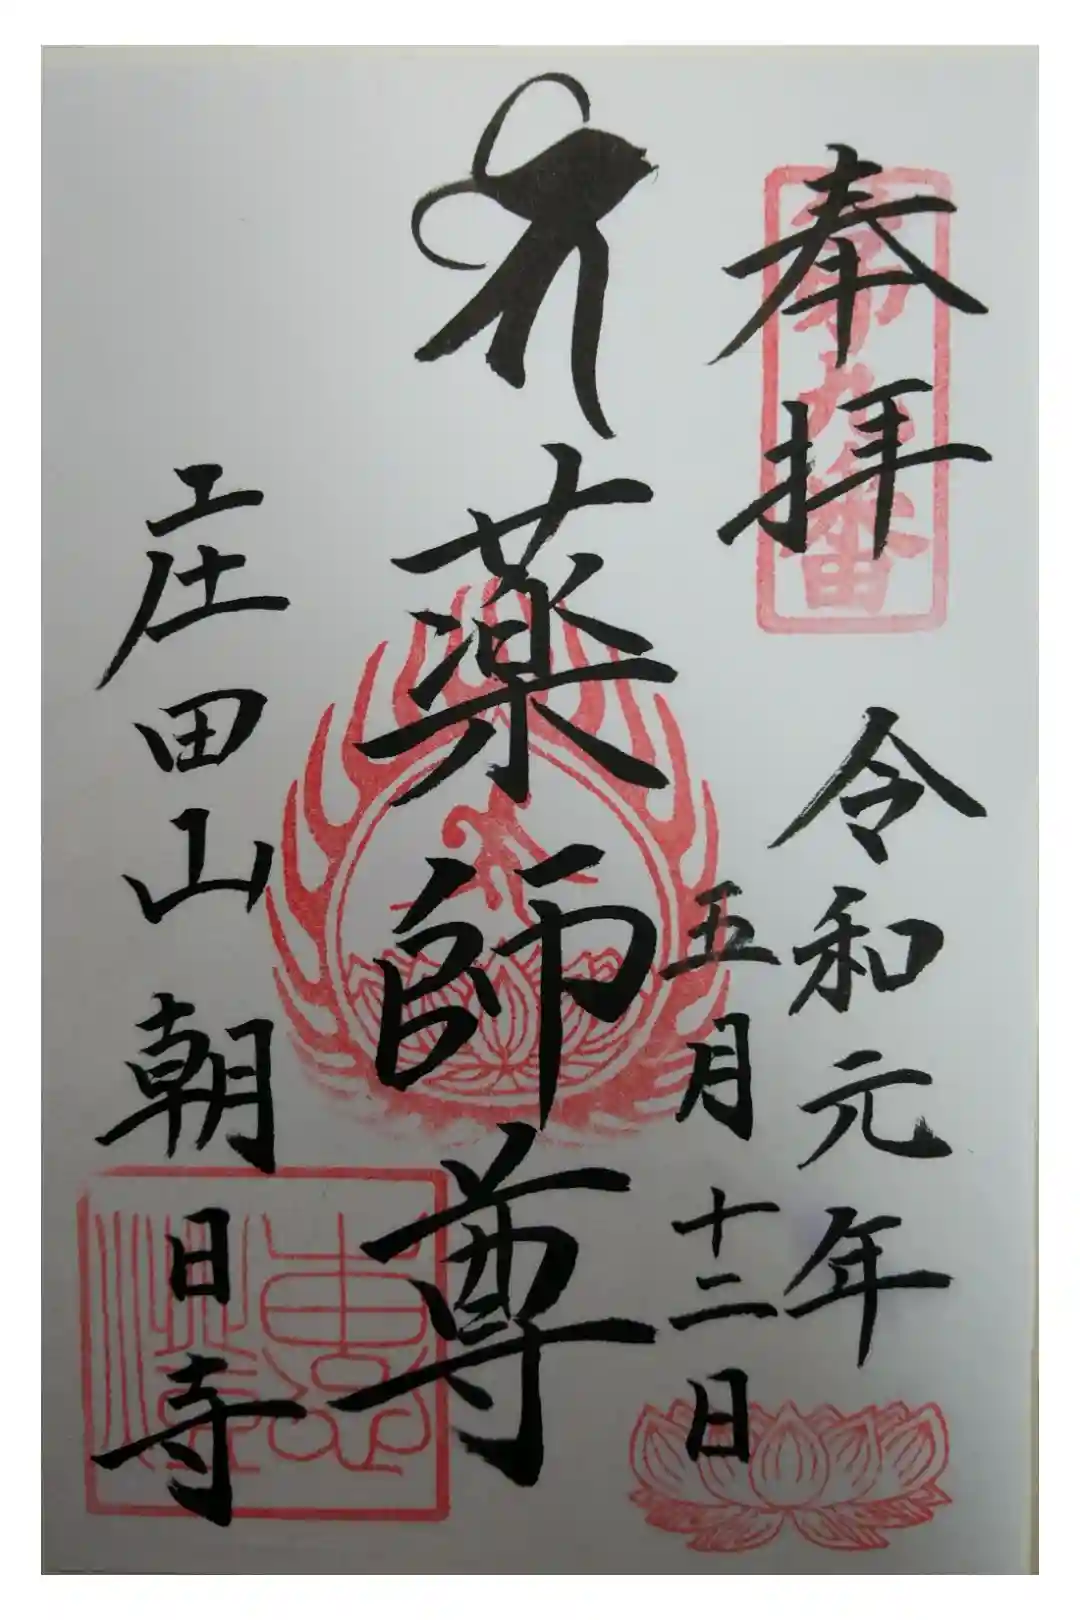 奉拝
第九番
令和元年
五月十二日
薬師尊
庄田山 朝日寺